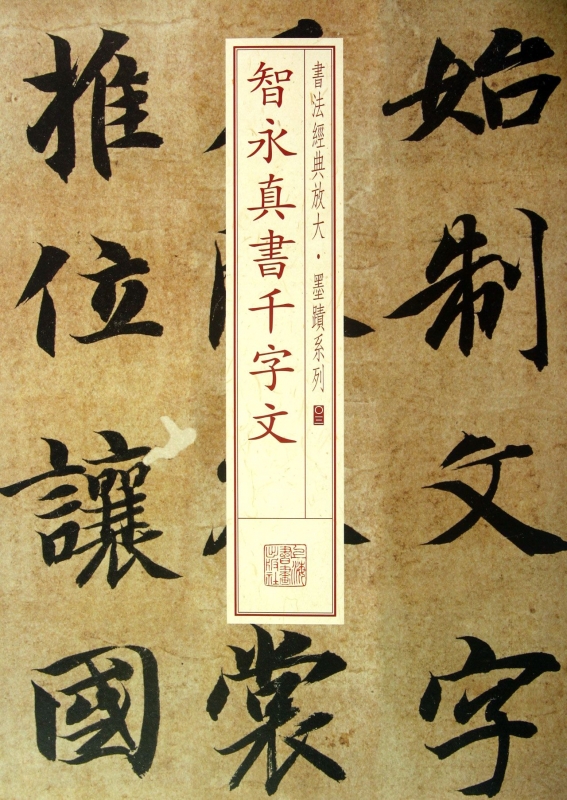 始制文字
書法經典放大·墨蹟系列 〇三
智永真書千字文
上海
書畫
出版社
裳
推位讓國